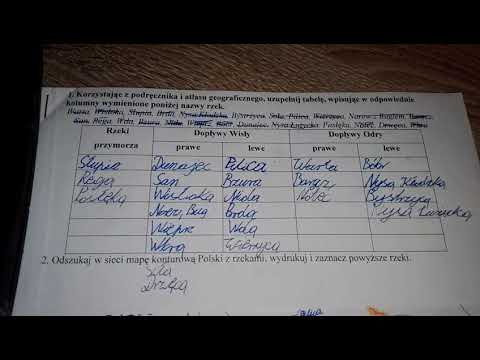 1. Korzystając z podręcznika i atlasu geograficznego, uzupełnij tabelę, wpisując w odpowiednie
kolumny wymienione poniżej nazwy rzek.
Wisłoka, Słupia, Brda, Nysa Kłodzka, Bystrzyca, Soła, Pilica, Wierzyca, Narew z Bugiem,
San, Rega, Wda, Bzura, Nida, Wieprz, Bóbr, Dunajec, Nysa Łużycka, Pasłęka, Noteć, Drwęca,
Rzeki przymorza
Dopływy Wisły
Dopływy Odry
prawe lewe prawe lewe
Słupia Dunajec Pilica Warta Bóbr
Rega San Bzura Barycz Nysa Kłodzka
Pasłęka Wisłoka Nida Noteć Bystrzyca
Narew, Bug Brda Nysa Łużycka
Wieprz Wda
Wierzyca
2. Odszukaj w sieci mapę konturową Polski z rzekami, wydrukuj i zaznacz powyższe rzeki.